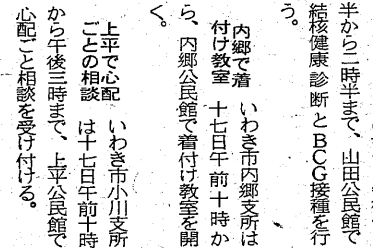 半から二時半まで、山田公民館で
結核健康診断とBCG接種を行
う。
内郷で着
付け教室
いわき市内郷支所は
十七日午前十時か
ら、内郷公民館で着付け教室を開
く。
上平で心配
ごとの相談
いわき市小川支所
は十七日午前十時
から午後三時まで、上平公民館で
心配ごと相談を受け付ける。